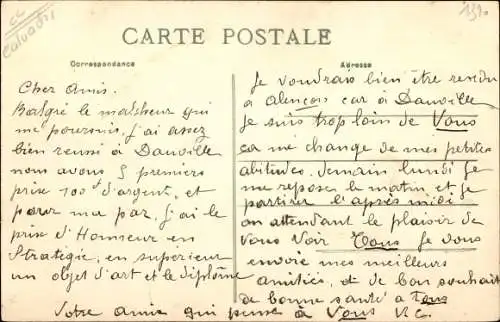 cc
Calvados
CARTE POSTALE
Correspondance
Adresse
Cher Amis.
Malgré le malheur qui
me poursuis, j'ai assez
bien reussi à Dauville
nous avons 5 premiers
prise 100 d'argent, et
pour ma par, j'ai le
prise d'Homeur en
Stratégie, en superieur
un objet d'art et le diplôme
Je voudrais bien être rendu
a alençois car à Dauville
Je suis trop loin de Vous
ça me change de mes petites
abitudes. demain lundi je
me repose le matin et je
partirer l'après midi
en attendant le plaisir de
Vous Voir Tous Je vous
envoie mes meilleurs
amitiés, et de bon souhait
de bonne santé a Tous
Votre amie qui pense à Vous